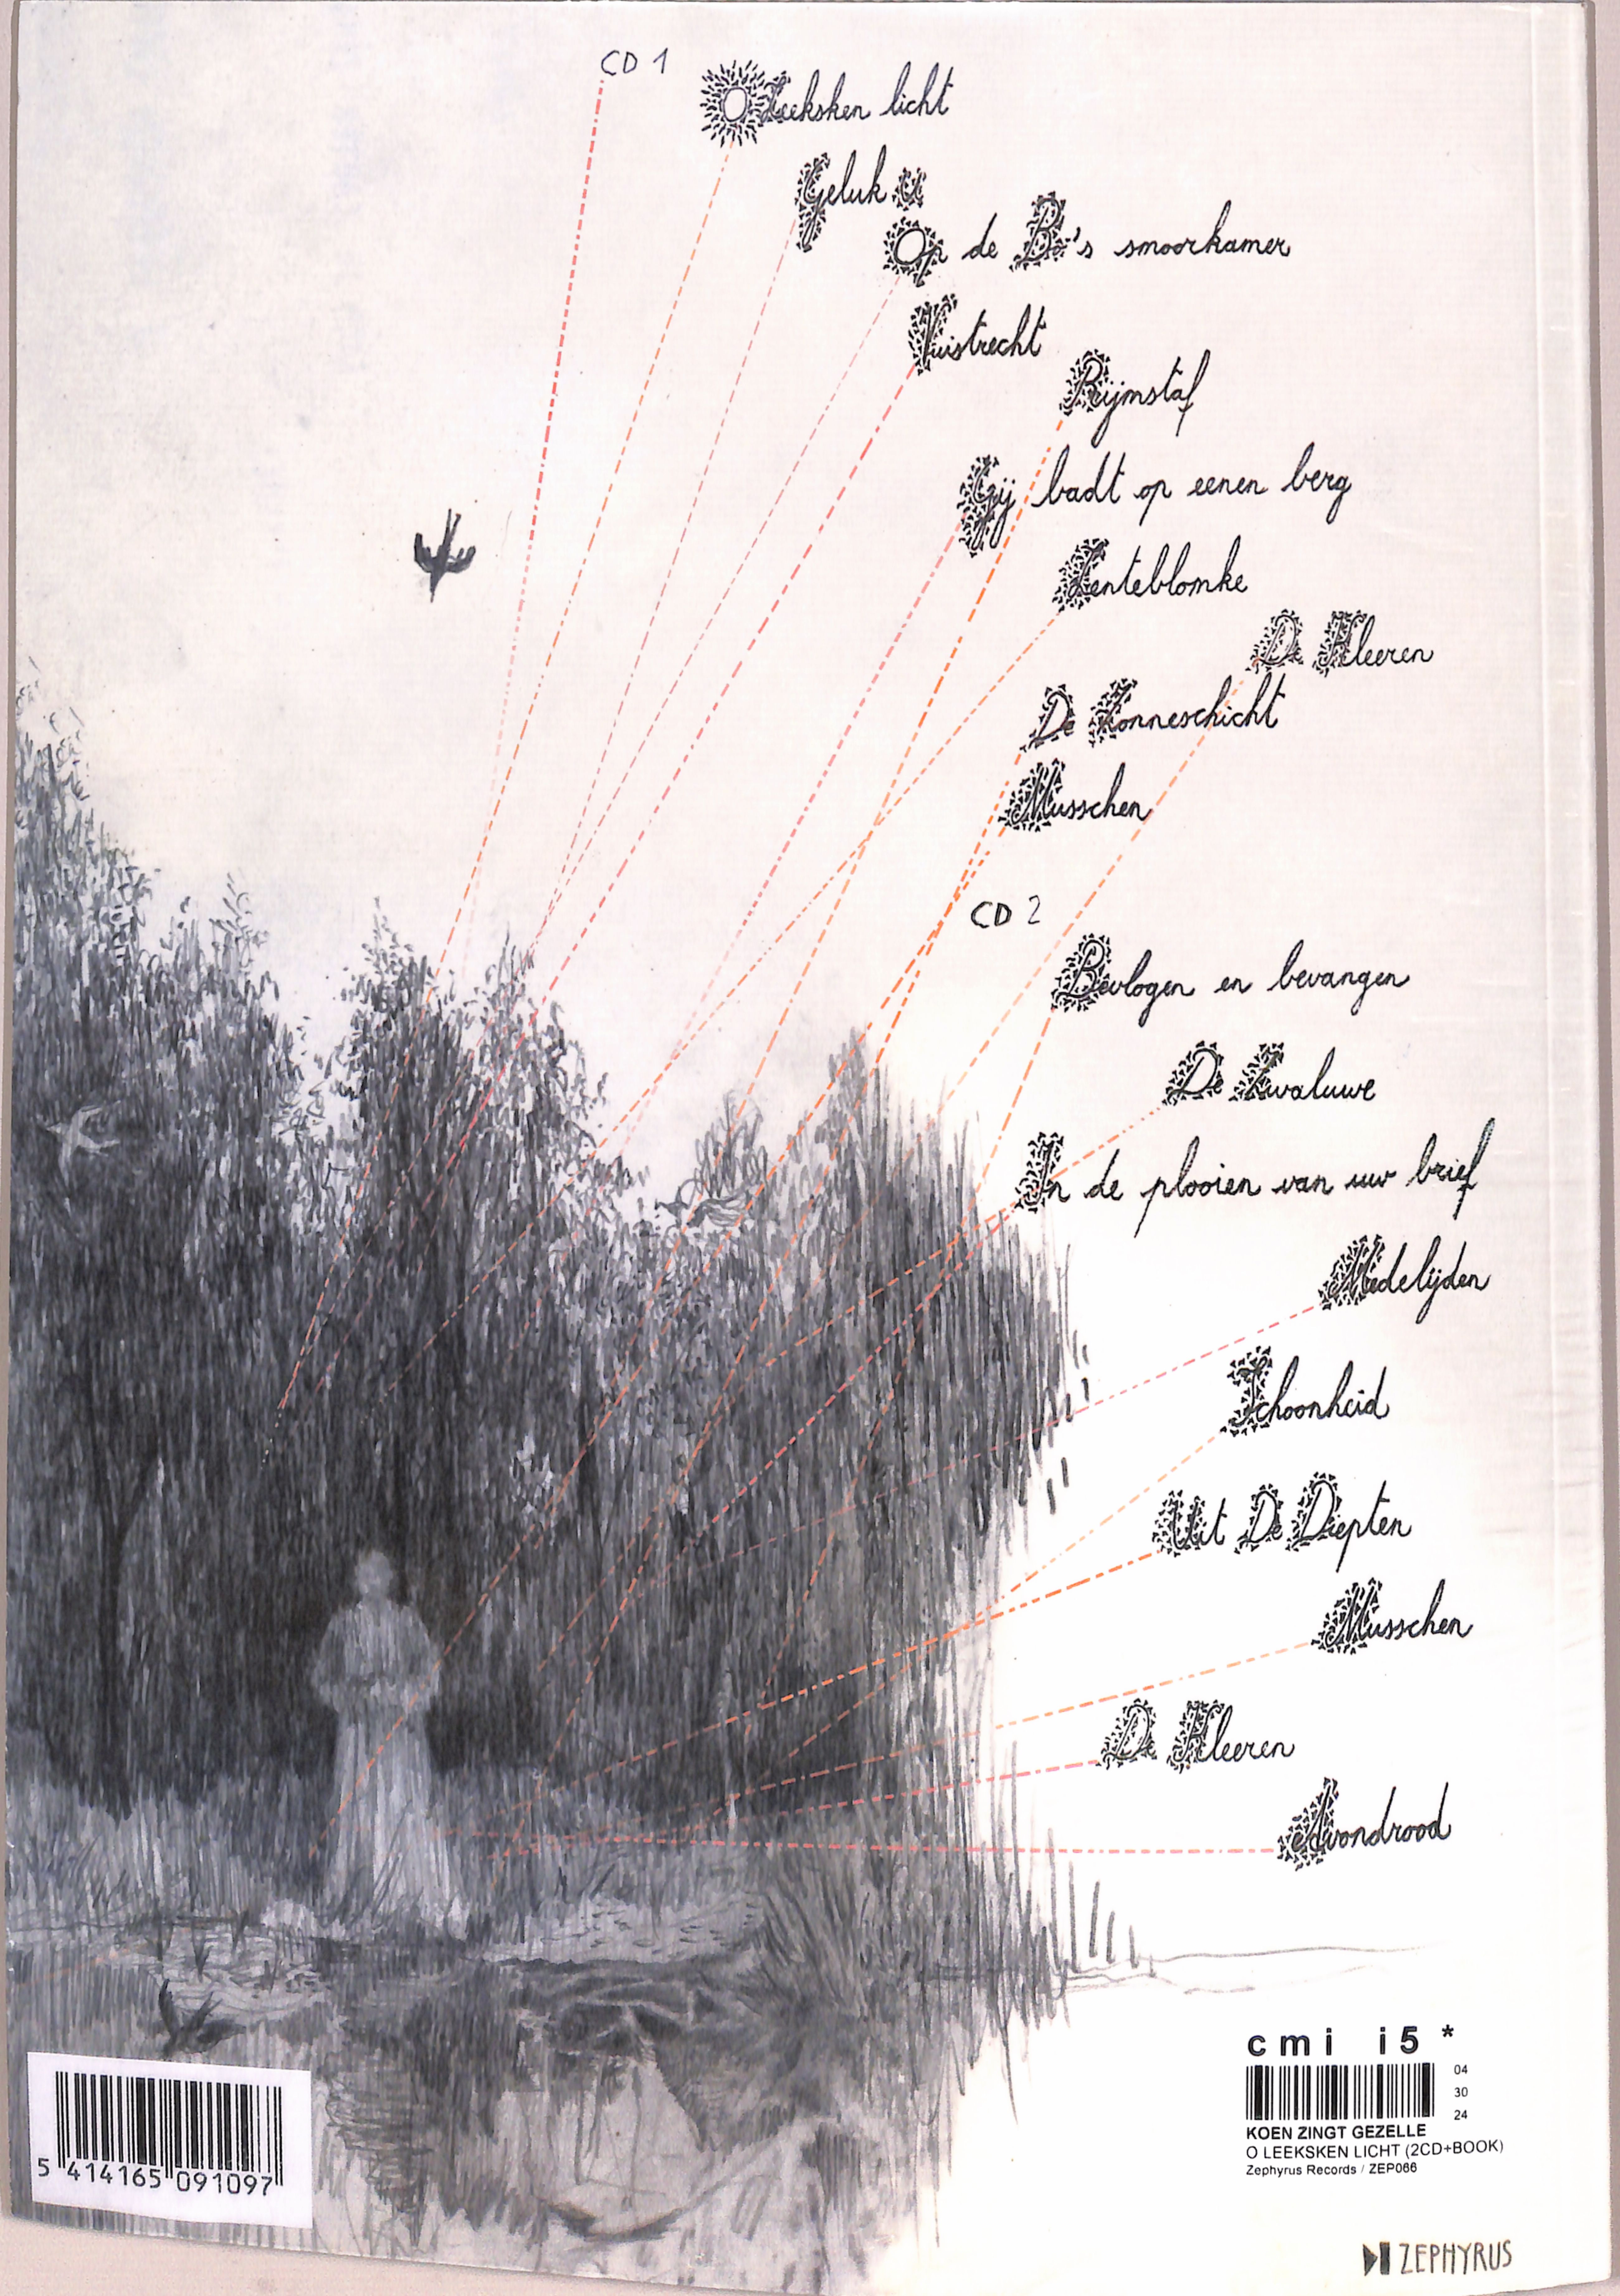 CD 1
O Leeksken licht
Geluk u
Op de Bo's smoorkamer
Vuistrecht
Rijmstaf
Gij badt op eenen berg
Lenteblomke
De Kleeren
De Zonneschicht
Musschen
CD 2
Bevlogen en bevangen
De Zwaluwe
In de plooien van uw brief
Medelijden
Schoonheid
Uit De Diepten
Musschen
De Kleeren
Avondrood
cmi i5 *
04
30
24
KOEN ZINGT GEZELLE
O LEEKSKEN LICHT (2CD+BOOK)
Zephyrus Records / ZEP066
5 414165 091097
ZEPHYRUS